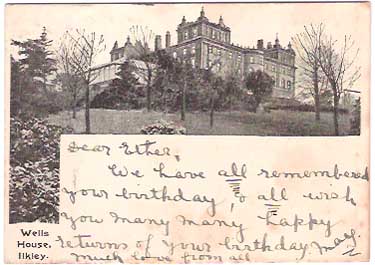 Dear Esther,
We have all remembered
your birthday, & all wish
you many many happy
returns of your birthday may.
much love from all
Wells
House,
Ilkley.